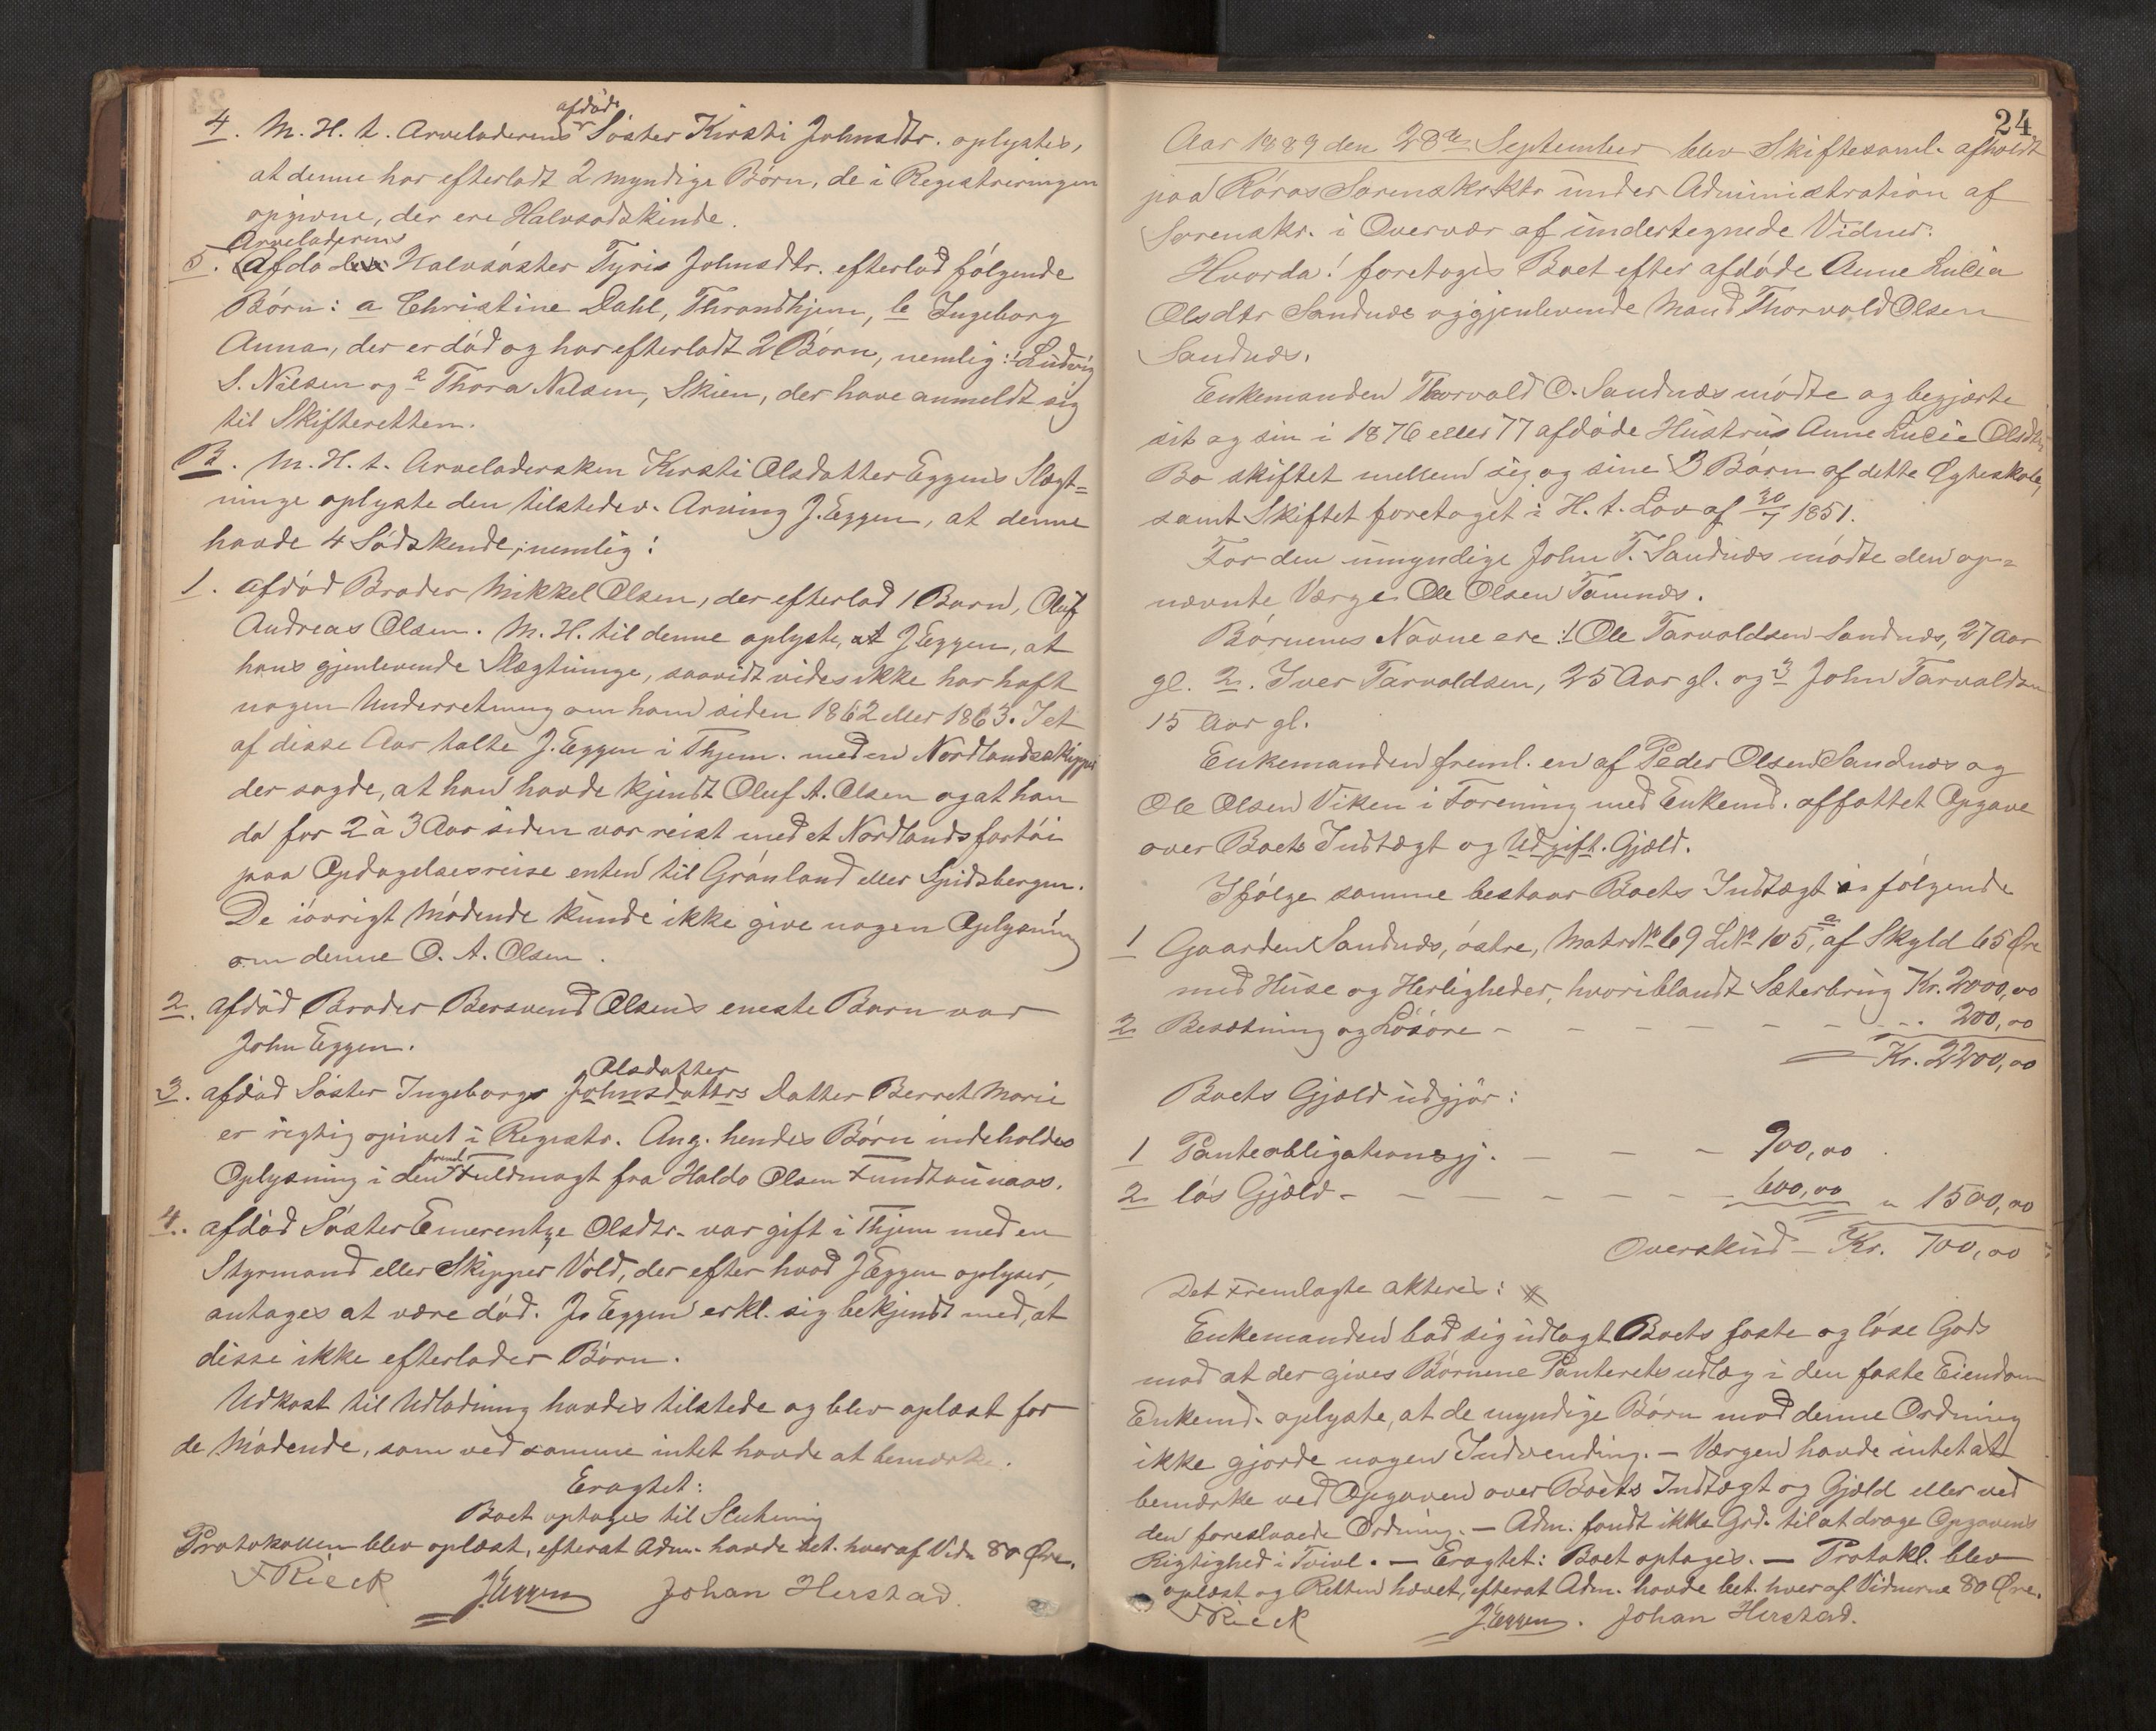 4. M. H. t. Arveladerens afdøde Søster Kirsti Johnsdtr. oplystes,
at denne har efterladt 2 myndige Børn, de i Registreringen
opgivne, der ere Halvsødskinde.
5. Arveladerens Afdø Halvsøster Tyris Johnsdtr. efterlod følgende
Børn: a Christine Dahl, Throndhjem, b Ingeborg
Anna, der er død og har efterladt 2 Børn, nemlig: 1 Ludvig
S. Nilsen og 2 Thora Nilsen, Skien, der have anmeldt sig
til Skifteretten.
B. M. H. t. Arveladersken Kirsti Olsdatter Eggens Slægt=
ninge oplyste den tilstedev. Arving J. Eggen, at denne
havde 4 Sødskende, nemlig:
1. afdød Broder Mikkel Olsen, der efterlod 1 Barn, Oluf
Andreas Olsen. M. H. til denne oplyste, at J Eggen, at
hans gjenlevende Slægtninge, saavidt vides ikke har haft
nogen Underretning om ham siden 1862 eller 1863. I et
af disse Aar talte J. Eggen i Thjem. med en Nordlandsskipper
der sagde, at han havde kjendt Oluf A. Olsen og at han
da for 2 à 3 Aar siden var reist med et Nordlandsfartøi
paa Opdagelsesreise enten til Grønland eller Spidsbergen.
De iøvrigt Mødende kunde ikke give nogen Oplysning
om denne O. A. Olsen.
2. afdød Broder Bersvend Olsens eneste Barn var
John Eggen.
3. afdød Søster Ingeborgs Johnsdatters Olsdatter Datter Berret Marie
er rigtig opivet i Registr. Ang. hendes Børn indeholdes
Oplysning i den freml. Fuldmagt fra Haldo Olsen Fundtaunaas.
4. afdød Søster Emerentze Olsdtr. var gift i Thjem med en
Styrmand eller Skipper Vold, der efter hvad J Eggen oplyser,
antages at være død. Jo Eggen erkl. sig bekjendt med, at
disse ikke efterlader Børn.
Udkast til Udlodning havdes tilstede og blev oplæst for
de Mødende, som ved samme intet havde at bemærke.
Eragtet:
Boet optages til Slutning
Protokollen blev oplæst, efterat Adm. havde bet. hver af Vidn 80 Øre.
F Rieck J. Eggen Johan Herstad.
24
Aar 1889 den 28de September blev Skiftesaml. afholdt
paa Røros Sorenskrktr under Administration af
Sorenskr. i Overvær af undertegnede Vidner.
Hvorda! foretoges Boet efter afdøde Anne Lucia
Olsdtr Sandnæs og gjenlevende Mand Thorvald Olsen
Sandnæs.
Enkemanden Thorvald O. Sandnæs mødte og begjærte
sit og sin i 1876 eller 77 afdøde Hustrus Anne Lucie Olsdtrs
Bo skiftet mellem sig og sine 3 Børn af dette Ægteskab,
samt Skiftet foretaget i H. t. Lov af 30/7 1851.
For den umyndige John T. Sandnæs mødte den op=
nævnte Værge Ole Olsen Tamnæs.
Børnenes Navne ere: 1. Ole Tarvaldsen Sandnæs, 27 Aar
gl. 2. Iver Tarvaldsen, 25 Aar gl. og 3 John Tarvaldsen
15 Aar gl.
Enkemanden freml. en af Peder Olsen Sandnæs og
Ole Olsen Viken i Forening med Enkemd. affattet Opgave
over Boets Indtægt og Udgift. Gjæld.
Ifølge samme bestaar Boets Indtægt i følgende
1 Gaarden Sandnæs, østre, Matr No 69 L No 105, a af Skyld 65 Øre
med Huse og Herligheder, hvoriblandt Sæterbrug Kr. 2000,00
2 Besætning og Løsøre - - - - - - - 200,00
Kr. 2200,00
Boets Gjæld udgjør:
1 Panteobligationsgj. - - - 900,00
2 løs Gjæld - - - - - - 600,00 " 1500,00
Overskud - Kr. 700,00
Det Fremlagte akteres: #
Enkemanden bad sig udlagt Boets faste og løse Gods
mod at der gives Børnene Panteretsudlæg i den faste Eiendom
Enkemd. oplyste, at de myndige Børn mod denne Ordning
ikke gjorde nogen Indvending. - Værgen havde intet at
bemærke ved Opgaven over Boets Indtægt og Gjæld eller ved
den foreslaaede Ordning. - Adm. fandt ikke Grd. til at drage Opgavens
Rigtighed i Tvivl. - Eragtet: Boet optages. - Protokl. blev
oplæst og Retten hævet, efterat Adm. havde bet. hver af Vidnerne 80 Øre.
F Rieck J. Eggen. Johan Herstad.